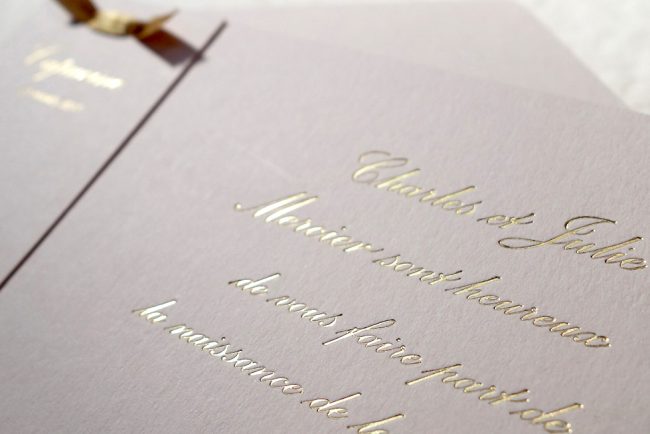 Charles et Julie
Mercier sont heureux
de vous faire part de
la naissance de la